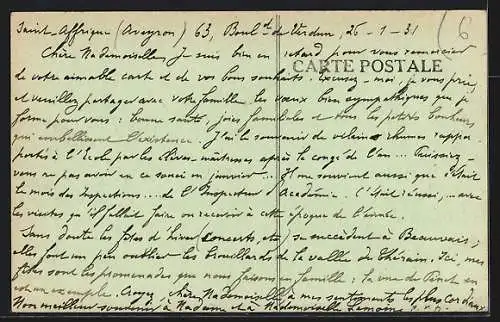 Saint-Affrique (Aveyron) 63, Boul.d de Verdun, 26-1-31
6
Chère Mademoiselle, Je suis bien en retard pour vous remercier
CARTE POSTALE
de votre aimable carte et de vos bons souhaits. Excusez-moi, je vous prie,
et veuillez partager avec votre famille les vœux bien sympathiques que je
forme pour vous : bonne santé, joies familiales et tous les petits bonheurs
qui embellissent l'existence. J'ai le souvenir de vilains rhumes rappor-
portés à l'École par les élèves-maîtresses après le congé de l'an... Puissiez-
vous ne pas avoir eu ce souci en janvier... Il me souvient aussi que c'était
le mois des Inspections... de l'Inspecteur d'Académie. C'était aussi, avec
les visites qu'il fallait faire ou recevoir à cette époque de l'année.
Sans doute les fêtes d'hiver (concerts, etc) se succèdent à Beauvais,
elles font un peu oublier les brouillards de la vallée du Thérain. Ici, mes
fêtes sont les promenades que nous faisons en famille : la vue de
est un exemple. Croyez, chère Mademoiselle à mes sentiments les plus cordiaux
Mon meilleur souvenir à Madame et à Mademoiselle Lemoine